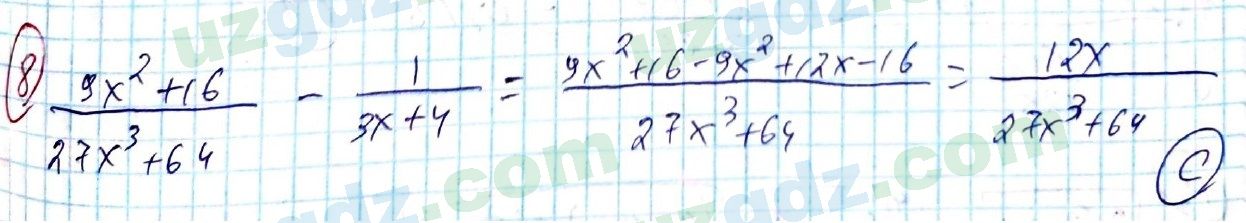 8 (9x²+16)/(27x³+64) - 1/(3x+4) = (9x²+16-9x²+12x-16)/(27x³+64) = 12x/(27x³+64)
C
uzgdz.com
uzgdz.com